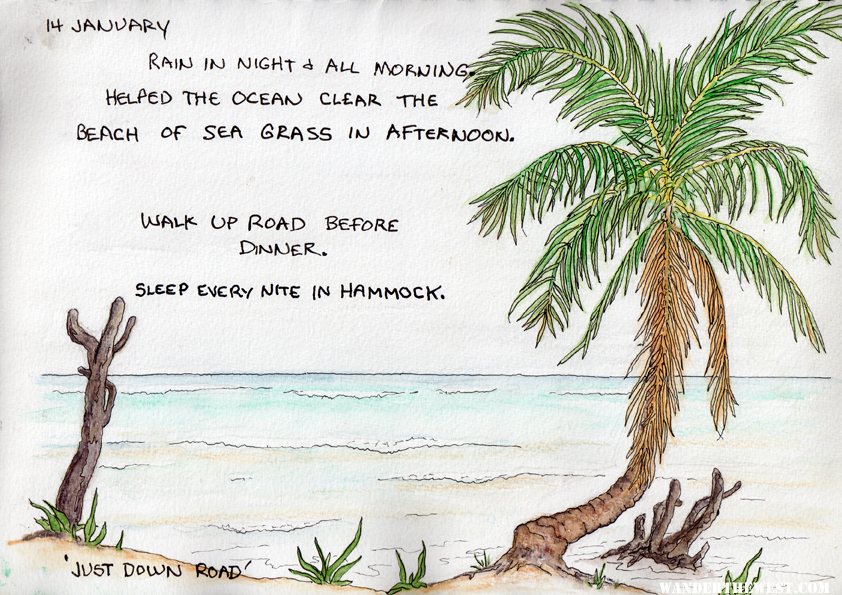 14 JANUARY
RAIN IN NIGHT & ALL MORNING.
HELPED THE OCEAN CLEAR THE
BEACH OF SEA GRASS IN AFTERNOON.
WALK UP ROAD BEFORE
DINNER.
SLEEP EVERY NITE IN HAMMOCK.
'JUST DOWN ROAD'
WANDERTHEWEST.COM